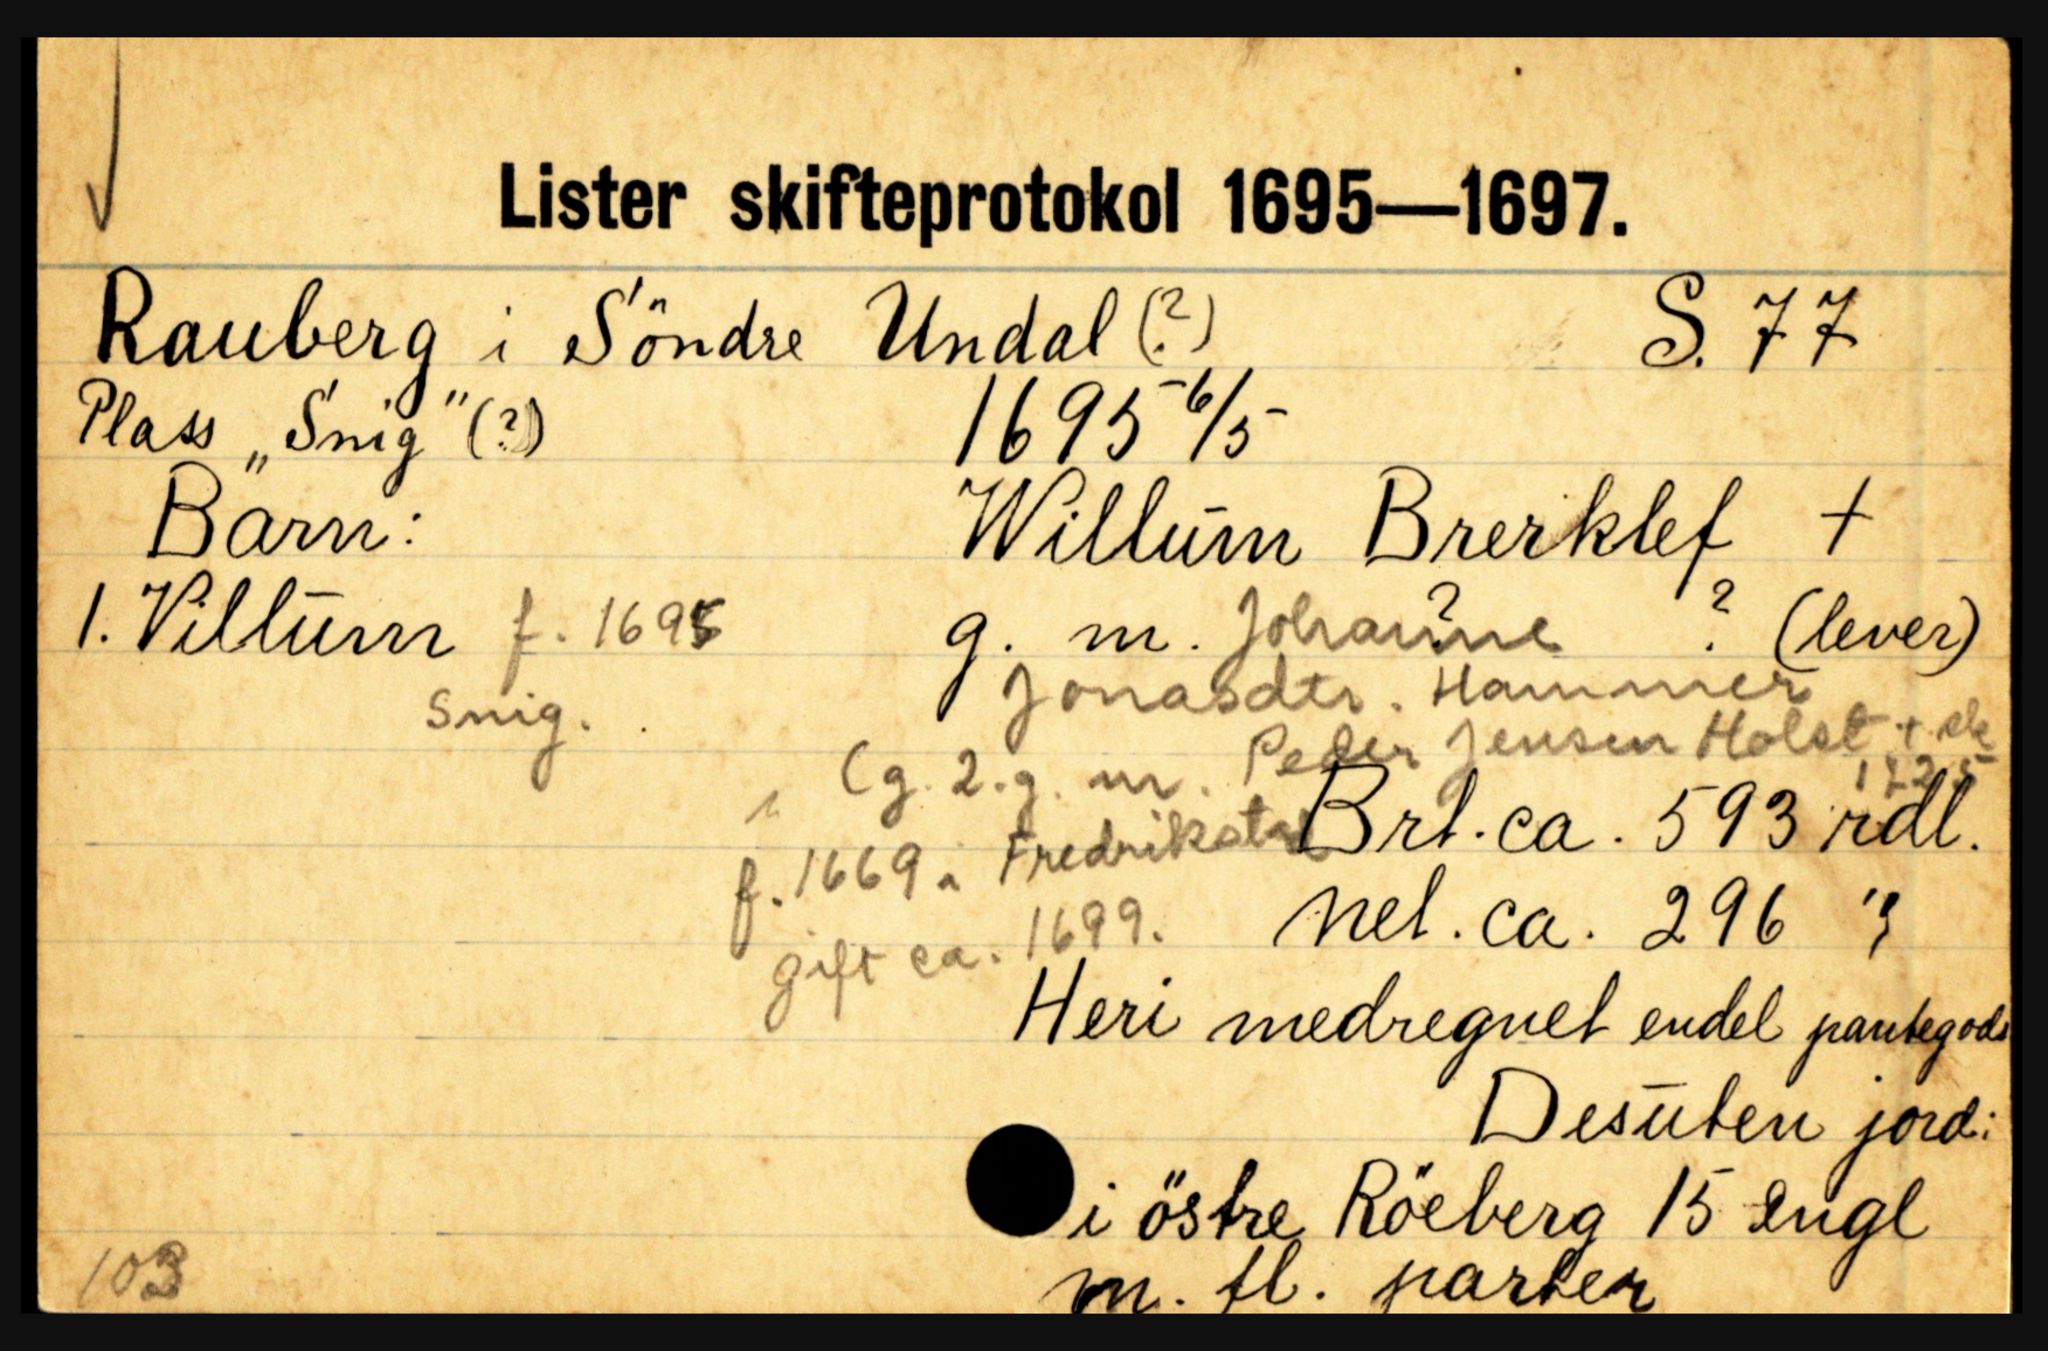 Lister skifteprotokol 1695—1697.
Rauberg i Söndre Undal (?) S. 77
Plass „Snig" (?) 1695 6/5
Barn: Willum Brerklef +
1. Villum f. 1695 g. m. Johanne ? ? (lever)
Snig. Jonasdtr. Hammer
(g. 2. g. m. Peder Jensen Holst + sk
1725
Brt. ca. 593 rdl.
f. 1669 i Fredrikstad
net. ca. 296 "
gift ca. 1699.
Heri medregnet endel pantegods
Desuten jord:
i östre Röeberg 15 engl
m. fl. parter
103